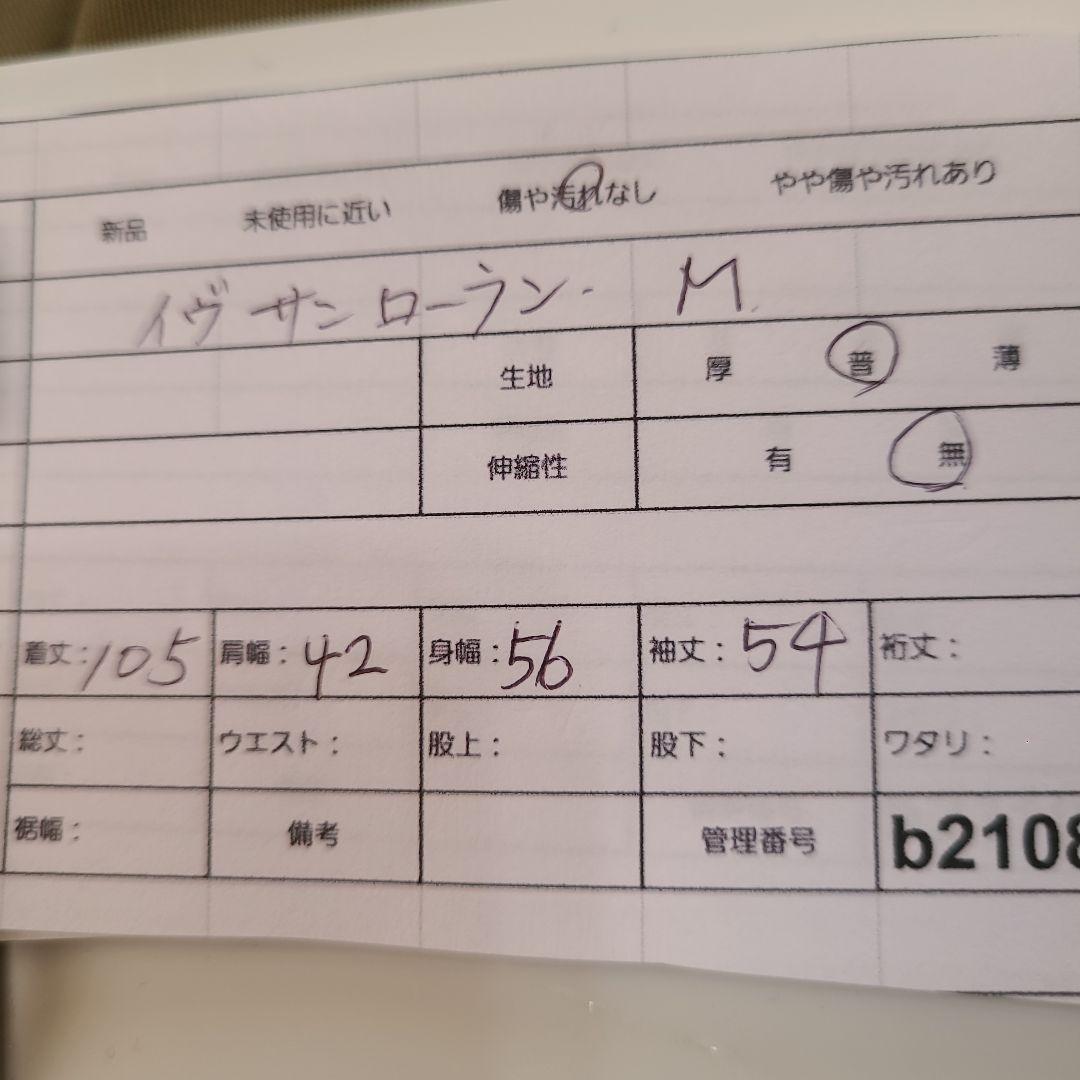 新品 未使用に近い 傷や汚れなし やや傷や汚れあり
イヴ サンローラン. M.
生地 厚 普 薄
伸縮性 有 無
着丈：105 肩幅：42 身幅：56 袖丈：54 裄丈：
総丈： ウエスト： 股上： 股下： ワタリ：
裾幅： 備考 管理番号 b2108